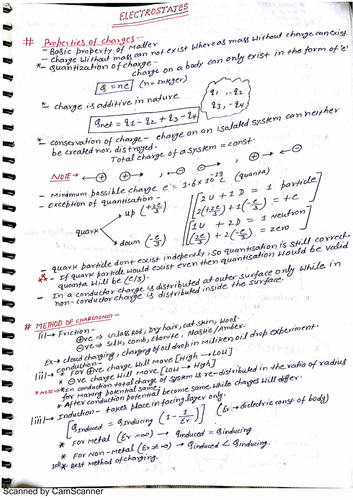 ELECTROSTATES
# Properties of charges:-
- Basic property of Matter
- Charge without mass can not exist whereas mass without charge can exist.
*- Quantization of charge-
charge on a body can only exist in the form of 'e'
Q = ne (n = Integer)
*- charge is additive in nature
q1 -q2
q3, -q4
Qnet = q1 - q2 + q3 - q4
*- conservation of charge - charge on an isolated system can neither
be created nor, distroyed.
Total charge of a system = const.
NOTE →
- Minimum possible charge e = 1.6 x 10^-19 (quanta)
- Exception of quantisation -
quark
up (+2e/3)
down (-e/3)
2U + 1D = 1 particle
2(+2e/3) + 1(-e/3) = +e
1U + 2D = 1 neutron
(2e/3) + 2(-e/3) = zero
- quark particle dont exist indepently, so quantisation is still correct.
- If quark particle would exist even then quantisation would be valid
quanta will be (e/3).
- In a conductor charge is distributed at outer surface only while in
non-conductor charge is distributed inside the surface.
# METHOD OF CHARGING:-
(i) → Friction -
⊕ve ⇒ Glass Rod, Dry hair, cat skin, Wool.
⊖ve ⇒ silk, comb, Ebonite, Plastic/Amber.
Ex → cloud charging, charging of oil drop in Miliken oil drop experiment.
(ii) → conduction -
* For ⊕ve charge will Move [High → LOW]
* ⊖ve charge will Move [LOW → High]
* NOTE → * In conduction total charge of system is re-distributed in the ratio of radius
for making potential same.
* After conduction potential become same while charges will differ.
(iii) → Induction - takes place in facing layer only.
Qinduced = Qinducing (1 - 1/Er) (Er → dielectric const of body)
* For Metal (Er = ∞) → Qinduced = Qinducing
* For Non-Metal (Er ≠ ∞) → Qinduced < Qinducing.
* Best Method of charging.
Scanned by CamScanner